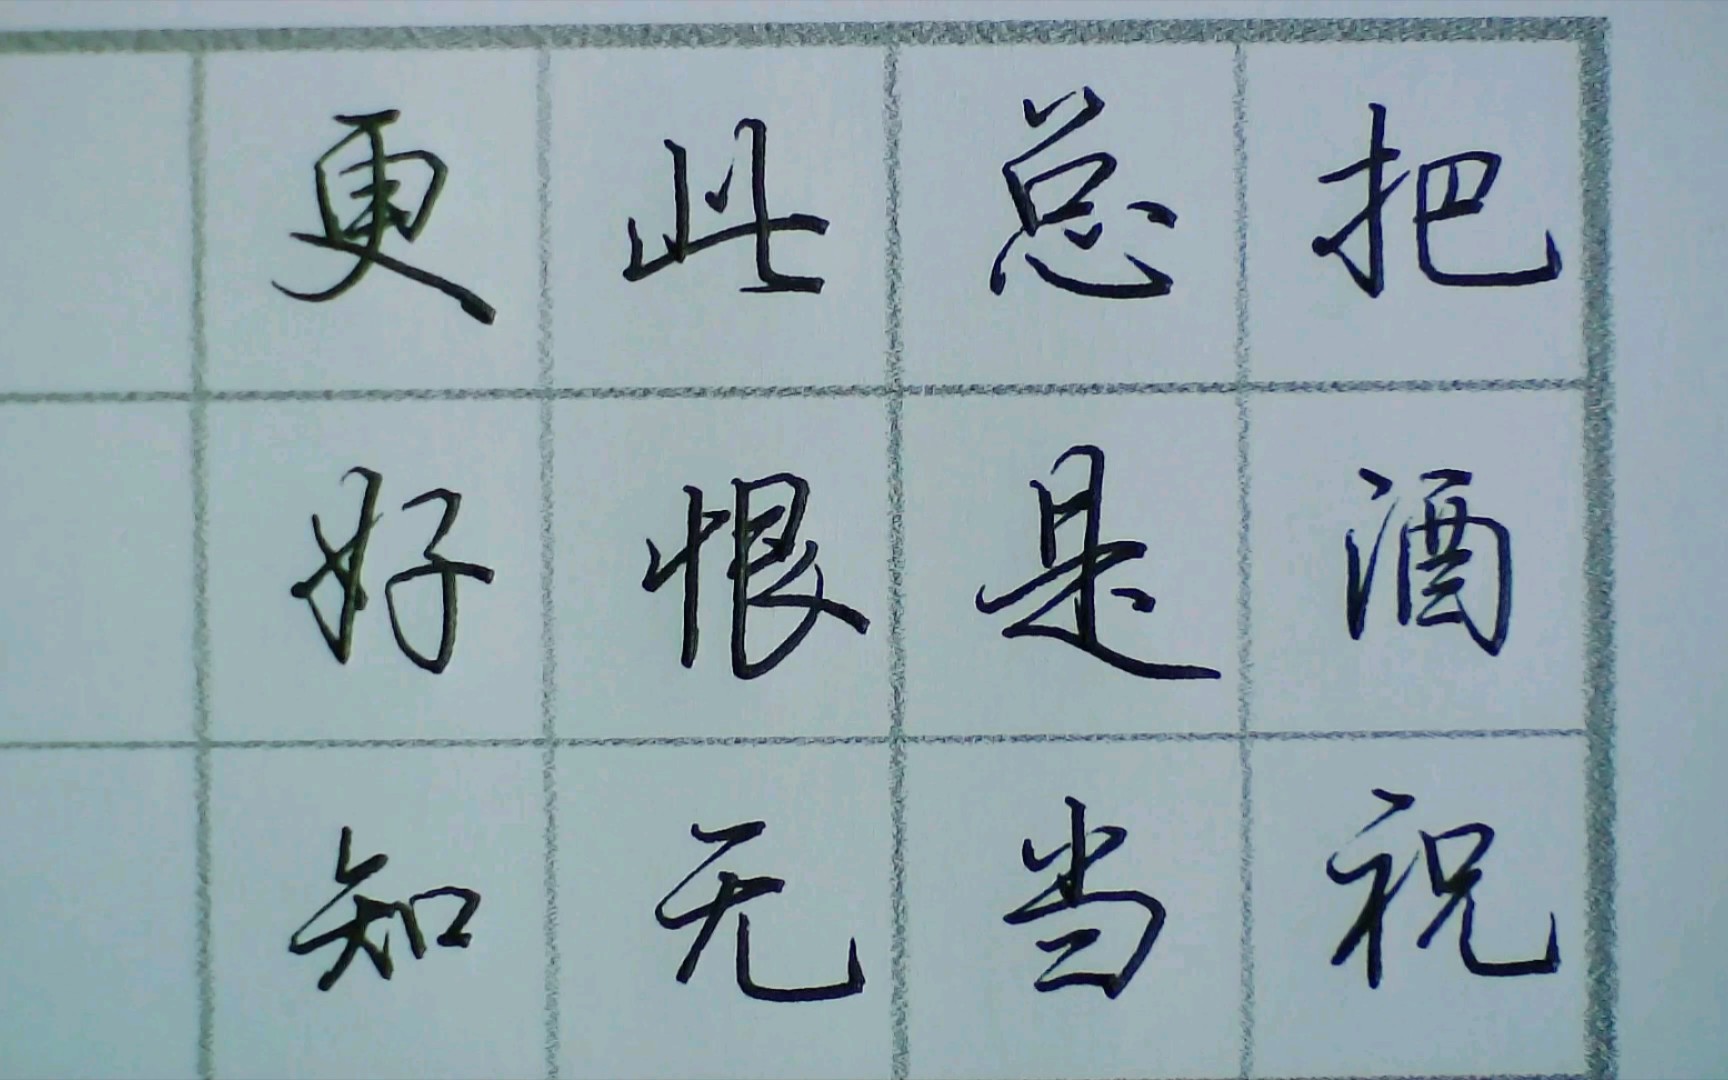 把酒祝
总是当
此恨无
更好知